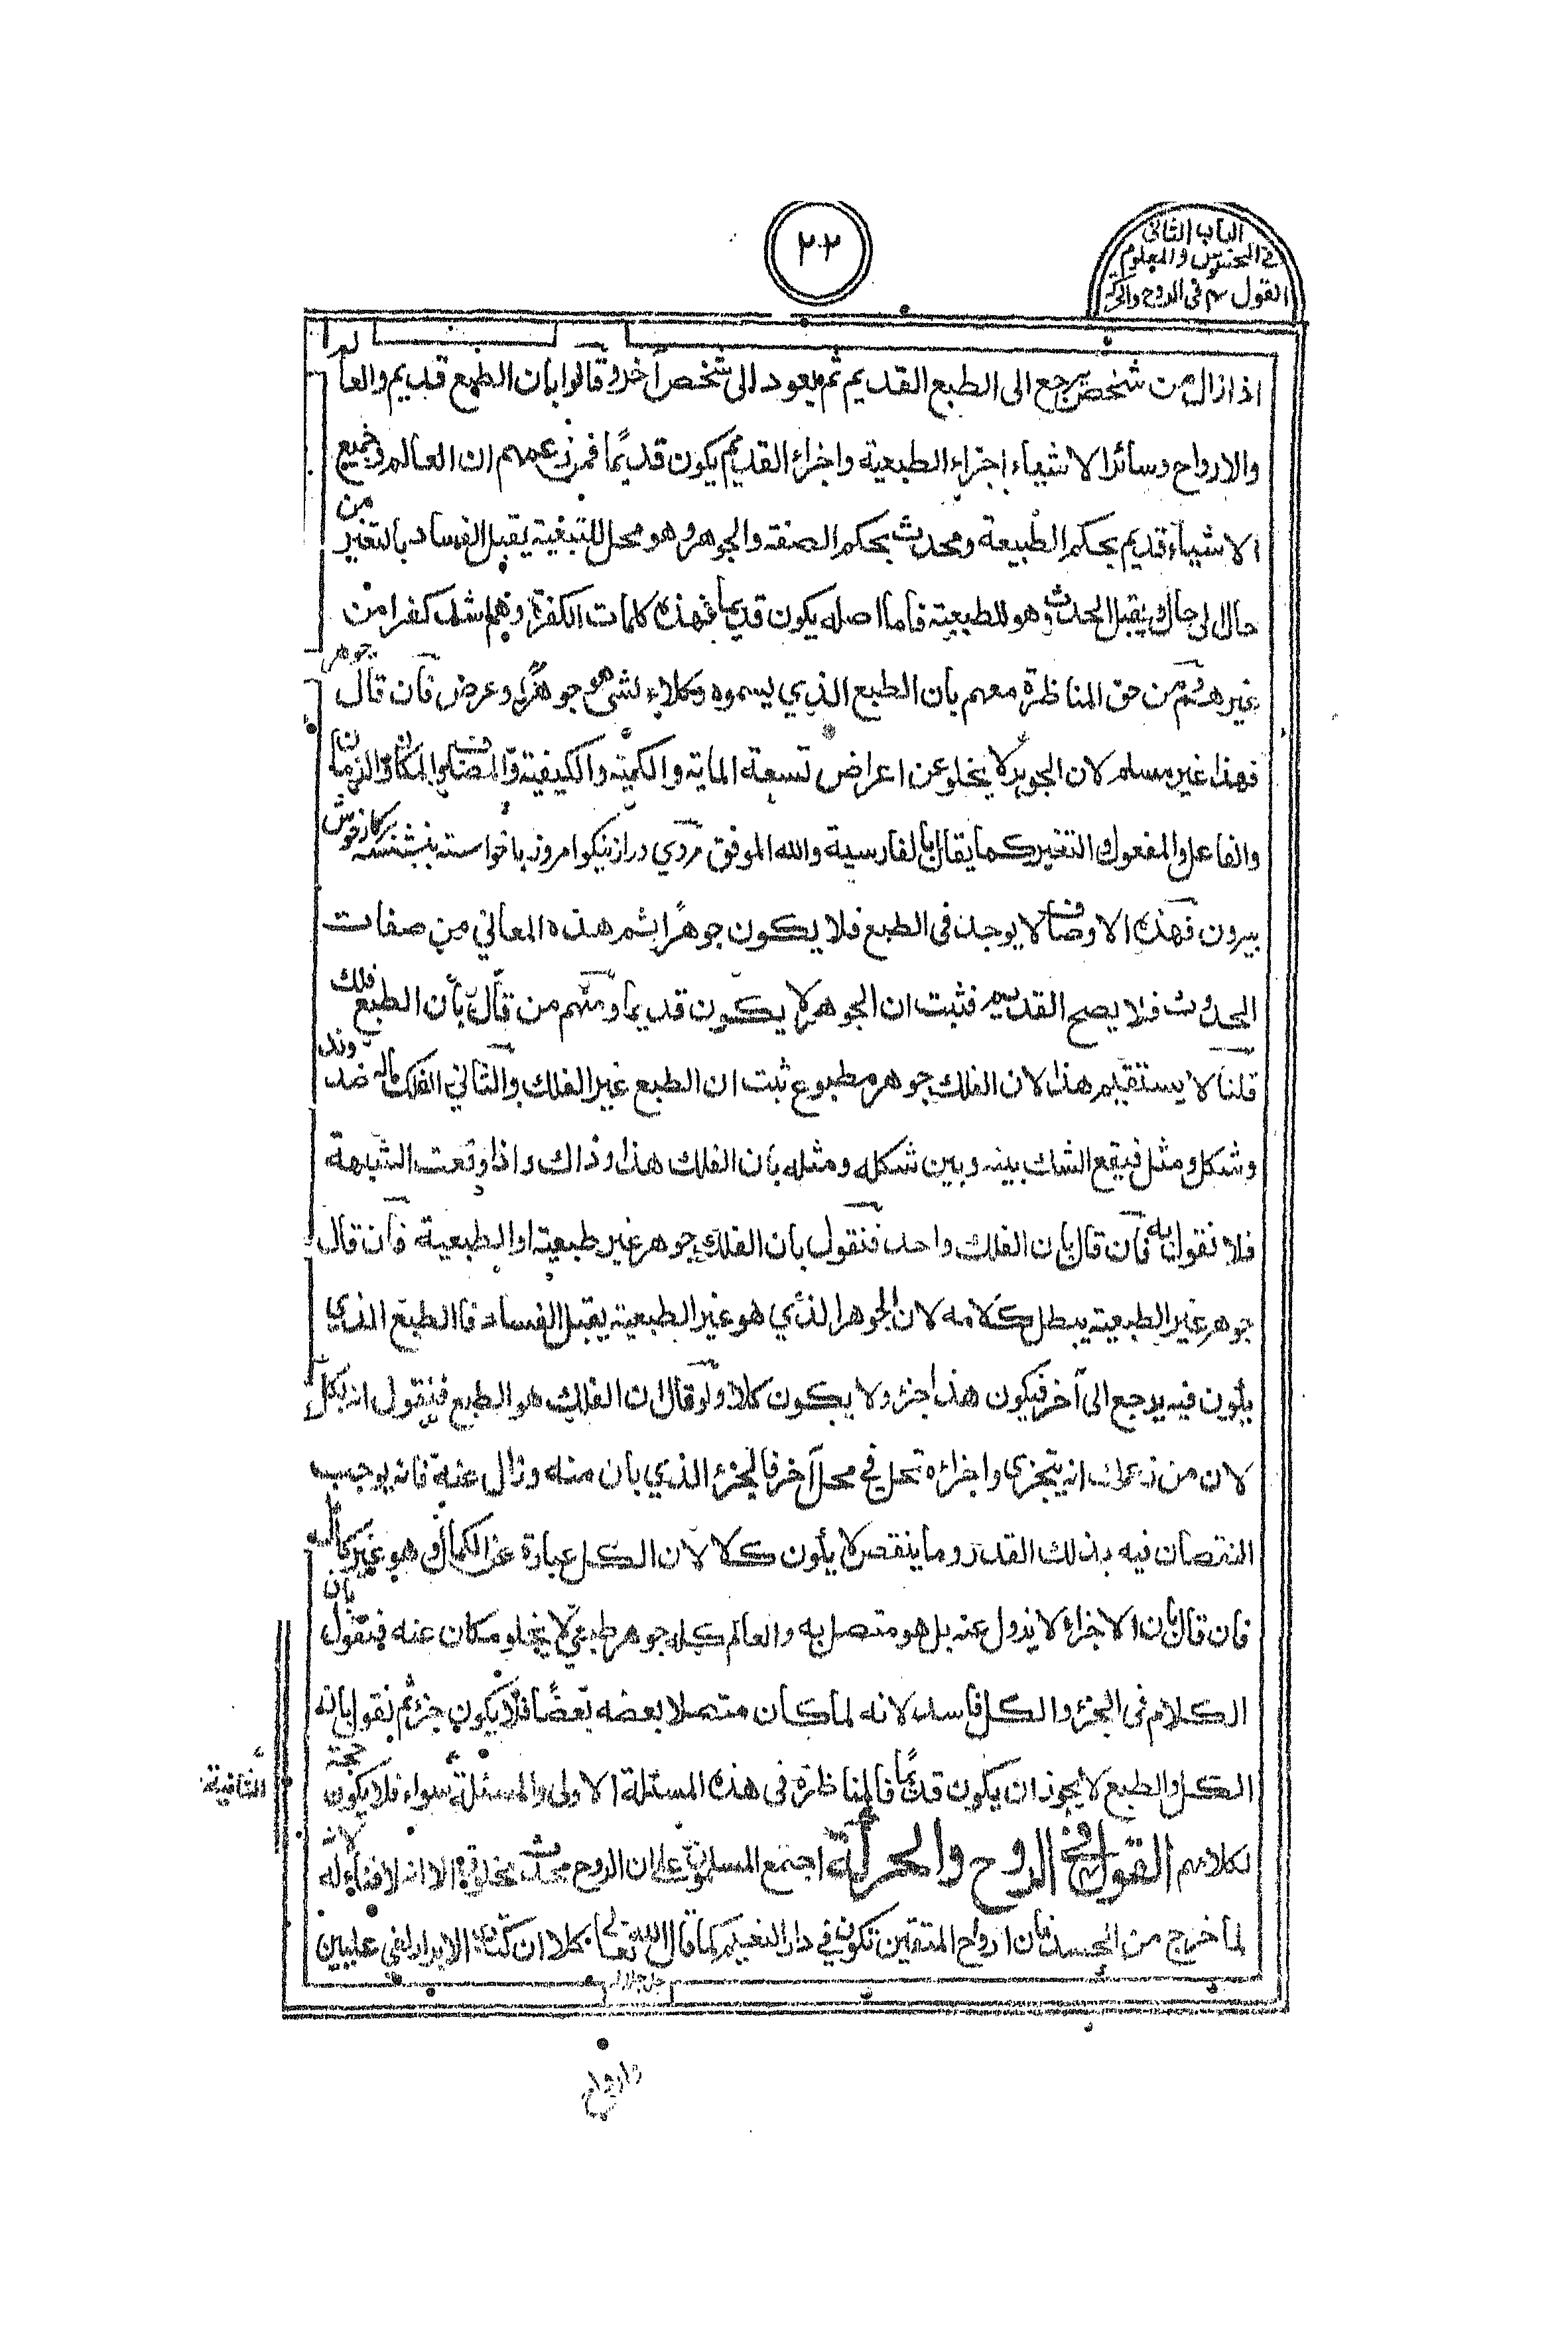 الباب الثاني
في المحسوس والمعلوم
القول ٣ في الروح والحركة
٢٠٢
اذا زال من شخص يرجع الى الطبع القديم ثم يعود الى شخص آخر وقالوا بان الطبع قديم والعالم
والارواح وسائر الاشياء اجزاء الطبعية واجزاء القديم يكون قديمًا فمن زعمهم ان العالم في جميع
الاشياء قديم بحكم الطبيعة ومحدث بحكم الصنعة والجوهر وهو محل للتبعية يقبل الفساد بالتغير من
حال الى حال يقبل الحدث وهو للطبعية فاما اصله يكون قديما فهذه كلمات الكفرة وهم اشد كفرا من
غيرهم ثم من حق المناظرة معهم بان الطبع الذي يسموه وكلاء لشئ هو جوهرًا وعرض فان قال جوهر
فهذا غير مسلم لان الجوهر لا يخلو عن اعراض تسعة الماية والكمية والكيفية والمضاف والمكان والزمان
والفاعل والمفعول والتغير كما يقال بالفارسية والله الموفق مردي دراز نيكو امروز با خواسته بنشسته كار خويش
بيرون فهذه الاوصاف لا يوجد في الطبع فلا يكون جوهرًا ثم هذه المعاني من صفات
الحدوث فلا يصح القديم فثبت ان الجوهر لا يكون قديما ومنهم من قال بأن الطبع فلك
قلنا لا يستقيم هذا لان الفلك جوهر مطبوع ثبت ان الطبع غير الفلك والثاني الفلك ماله ضد وند
وشكل ومثل فيقع الشك بينه وبين شكله ومثله بان الفلك هذا وذاك واذا وقعت الشبهة
فلا نقول به فان قال بان الفلك واحد فنقول بان الفلك جوهر غير طبعية او الطبعية فان قال
جوهر غير الطبعية يبطل كلامه لان الجوهر الذي هو غير الطبعية يقبل الفساد فاالطبع الذي
يكون فيه يرجع الى آخر فيكون هذا جزء ولا يكون كلا ولو قال ان الفلك هو الطبع فنقول انه بكل
لان من زعمك انه يتجزى واجزاءه تحل في محل آخر فالجزء الذي بان منه وزال عنه فانه يوجب
النقصان فيه بذلك القدر وما ينقص لا يكون كلا لان الكل عبارة عن الكمال وهو غير كمال
فان قال بان الاجزاء لا يزول عنه بل هو متصل به والعالم كله جوهر طبعي لا يخلو مكان عنه فنقول بان
الكلام في الجزء والكل فاسد لانه لما كان متصلا بعضه بعضًا فلا يكون جزء ثم نقول بانه
الكل والطبع لا يجوز ان يكون قديمًا فالمناظرة في هذه المسئلة الاولى والمسئلة سواء فلا يكون حجة
الثانية
لكلامهم القول ٣ في الروح والحركة اجتمع المسلمون على ان الروح محدث مخلوق الا انه لا فناء له لانه
لما خرج من الجسد فان ارواح المتقين تكون في دار النعيم كما قال الله تعالى كلا ان كتاب الابرار لفي عليين
جل جلاله
وارواح